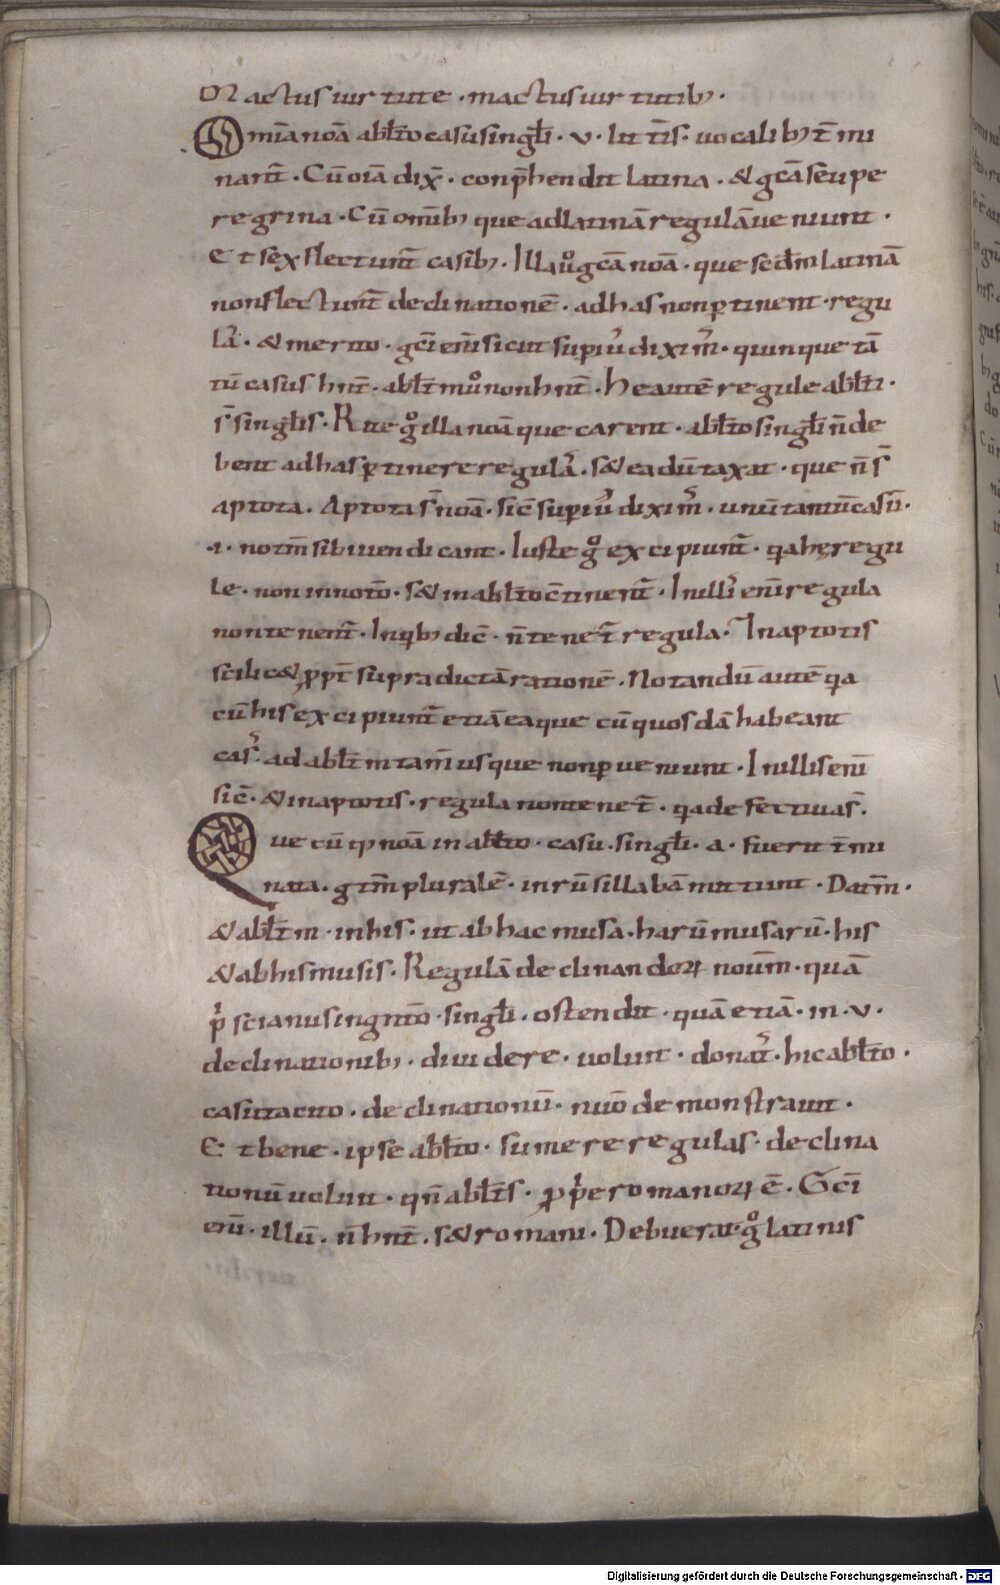 Mactus uirtute · mactus uirtutib; ·
Omīa noā abłto casu singłi · v · litt̄is · uocalib; t̄mi
nant̄ · Cū oīa dix̄ · conp̄hendit latina · & gcā seu pe
regrina · Cū omīb; que ad latinā regulā ueniunt ·
Et sex flectunt̄ casib; · Illa uͦ gcā noā · que scdm̄ latinā
non flectunt̄ declinationē · ad has non ꝑtinent · regu
lā · & merito · gci enī sicut supiuͥ diximͥ · quinque tā
tū casus hnt̄ · abłtm̄ uͦ non hnt̄ · He autē regule abłti ·
s̄ singłis · Rite gͦ illa noā que carent · abłto singłi n̄ de
bent ad has ꝑtinere regulā · s& ea dūtaxat · que n̄ s̄
aptota · Aptota s̄ noā · sic̄ supiuͥ diximͥ · unū tantū casū ·
·i· notm̄ sibi uendicant · Iuste gͦ excipiunt̄ · qa hę regu
le · non in noto̅ · s& in abłto c̄tinent̄ · In illiͥ enī regula
non tenent̄ · In qib; dic̄ · n̄ tenet̄ regula · In aptotis
scilic& ꝓpt̄ supradictā rationē · Notandū autē qa
cū his excipiunt̄ etiā ea que cū quosdā habeant
casͥ · ad abłtm̄ tam̄ usque non ꝑueniunt · In illis enī
sic̄ · & in aptotis · regula non tenet̄ · qa defectiua s̄ ·
Quecūqꝫ noā in abłto · casu · singłi · a · fuerit t̄mi
nata · gtm̄ pluralē · in rū sillabā mittunt · Datm̄ ·
& abłtm · in his · ut ab hac musa · harū musarū · his
& ab his musis · Regulā declinandoꝝ nouīm · quā
pͥscianus in gnto̅ · singłi · ostendit · quā etiā · in · v ·
declinationib; · diuidere · uoluit · donatͥ · hic abłto ·
casui tacito · declinationū · nuō demonstrauit ·
Et bene · ipse abłto · sumere regulas · declina
tionū uoluit · qn̄ abłt̄s · ꝓpͥe romanoꝝ ē · Gci
enī · illū · n̄ hnt̄ · s& romani · Debuerat gͦ latinis
Digitalisierung gefördert durch die Deutsche Forschungsgemeinschaft - DFG